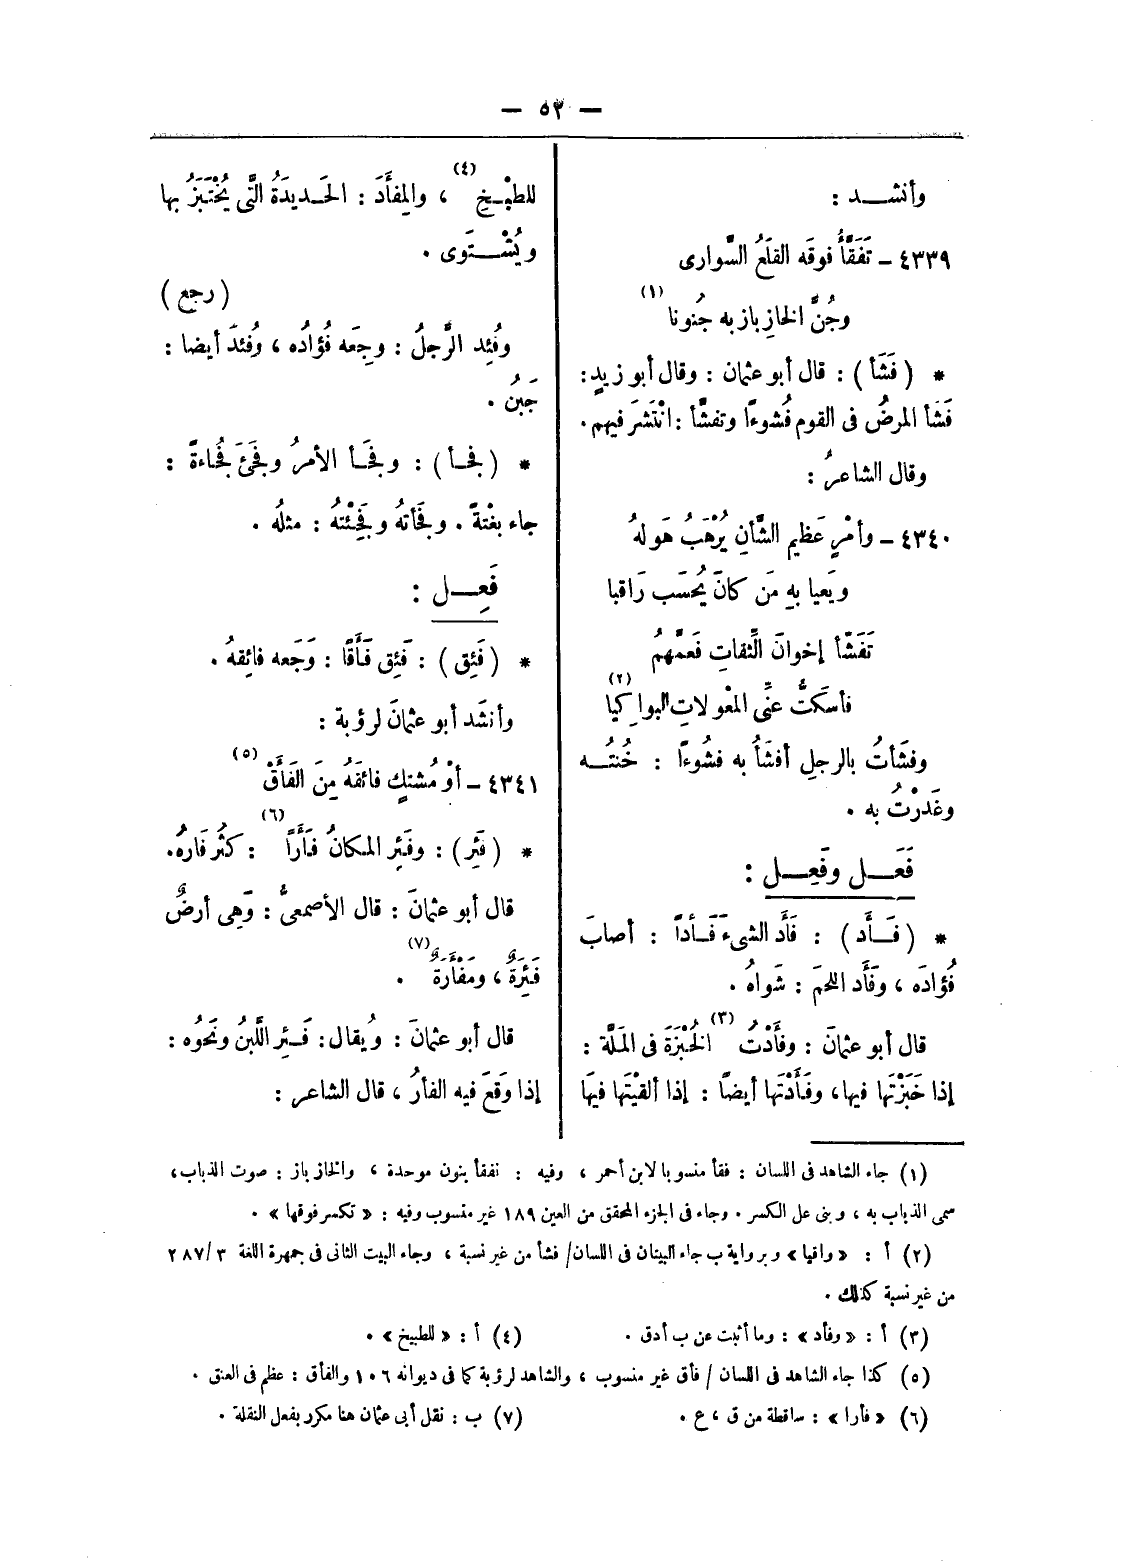 — ٥٢ —
وأنشـــد :
٤٣٣٩ - تَفَقَّأُ فوقَه القلَعُ السَّوارى
وجُنَّ الخازِ بازِ به جُنونا (١)
* ( فَشَأ ) : قال أبو عثمان : وقال أبو زيدٍ :
فَشَأ المرضُ فى القوم فُشوءًا وتفشَّأ : انْتَشرَ فيهم .
وقال الشاعرُ :
٤٣٤٠ - وأمْرٍ عَظيمِ الشَّأنِ يُرْهَبُ هَولهُ
ويَعيا بهِ مَن كانَ يُحسَب رَاقبا
تَفَشّأ إخوانَ الثِّقاتِ فَعمَّهُم
فأسكَتُّ عنِّى المعْولاتِ البواكِيا (٢)
وفشَأتُ بالرجلِ أفشَأُ به فشُوءًا : خُنتُــه
وغَدرْتُ به .
فَعَـــل وفَعِـــل :
* ( فَـأَد ) : فَأَد الشىءَ فَـأدًا : أصابَ
فُؤادَه ، وفَأَد اللحمَ : شَواهُ .
قال أبو عثمانَ : وفأَدْتُ (٣) الخُبْزَةَ فى المَلَّة :
إذا خَبَزْتَها فيها ، وفَأَدْتَها أيضًا : إذا ألقيْتَها فيهَا
للطبْـخِ (٤) ، والمِفأَدَ : الحَـديدَةُ الَّتى يُخْتَبَزُ بها
ويُشْـــتَوى .
( رجع )
وفُئِد الرَّجلُ : وجِعَه فُؤادُه ، وفُئدَ أيضا :
جَبنُ .
* ( فجـأ ) : وفجَـأ الأمرُ وفجَئَ فُجاءةً :
جاء بغْتةً . وفجَأتهُ وفَجِئْتهُ : مثلُه .
فَعِـــل :
* ( فَئِق ) : فَئِق فَأَقًا : وَجَعه فائِقهُ .
وأنشَد أبو عثمانَ لرؤبة :
٤٣٤١ - أوْ مُشتكٍ فائقَهُ مِنَ الفَأَقْ (٥)
* ( فَئِر ) : وفَئِر المكانُ فَأَرًا (٦) : كثُر فَارهُ .
قال أبو عثمانَ : قال الأصمعىُّ : وَهِى أرضٌ
فَئِرةٌ ، ومَفْأَرَةٌ (٧) .
قال أبو عثمانَ : ويُقال : فَـئِر اللَّبنُ ونَحوُه :
إذا وَقعَ فيه الفأرُ ، قال الشاعر :
(١) جاء الشاهد فى اللسان : فقأ منسوبا لابن أحمر ، وفيه : نفقأ بنون موحدة ، والخاز باز : صوت الذباب ،
سمى الذباب به ، وبنى عل الكسر . وجاء فى الجزء المحقق من العين ١٨٩ غير منسوب وفيه : « تكسر فوقها » .
(٢) أ : « واقيا » وبرواية ب جاء البيتان فى اللسان/ فشأ من غير نسبة ، وجاء البيت الثانى فى جمهرة اللغة ٣/ ٢٨٧
من غير نسبة كذلك .
(٣) أ : « وفأد » : وما أثبت عن ب أدق .
(٤) أ : « للطبيخ » .
(٥) كذا جاء الشاهد فى اللسان / فأق غير منسوب ، والشاهد لرؤبة كما فى ديوانه ١٠٦ والفأق : عظم فى العنق .
(٦) « فأرا » : ساقطة من ق ، ع .
(٧) ب : نقل أبى عثمان هنا مكرر بفعل النقلة .